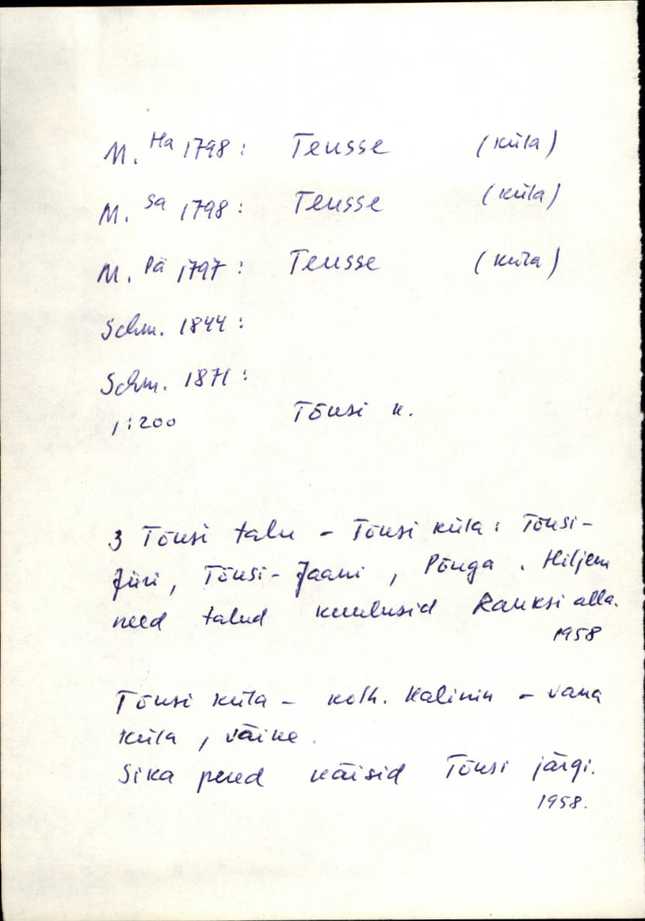 M. Ha 1798: Teusse (küla)
M. Sa 1798: Teusse (küla)
M. Pä 1797: Teusse (küla)
Schm. 1844:
Schm. 1871:
1:200 Tõusi k.
3 Tõusi talu - Tõusi küla: Tõusi-
Jüri, Tõusi-Jaani, Põuga. Hiljem
need talud kuulusid Rauksi alla.
1958
Tõusi küla - kolh. Kalinin - vana
küla, väike.
Sika pered käisid Tõusi järgi.
1958.